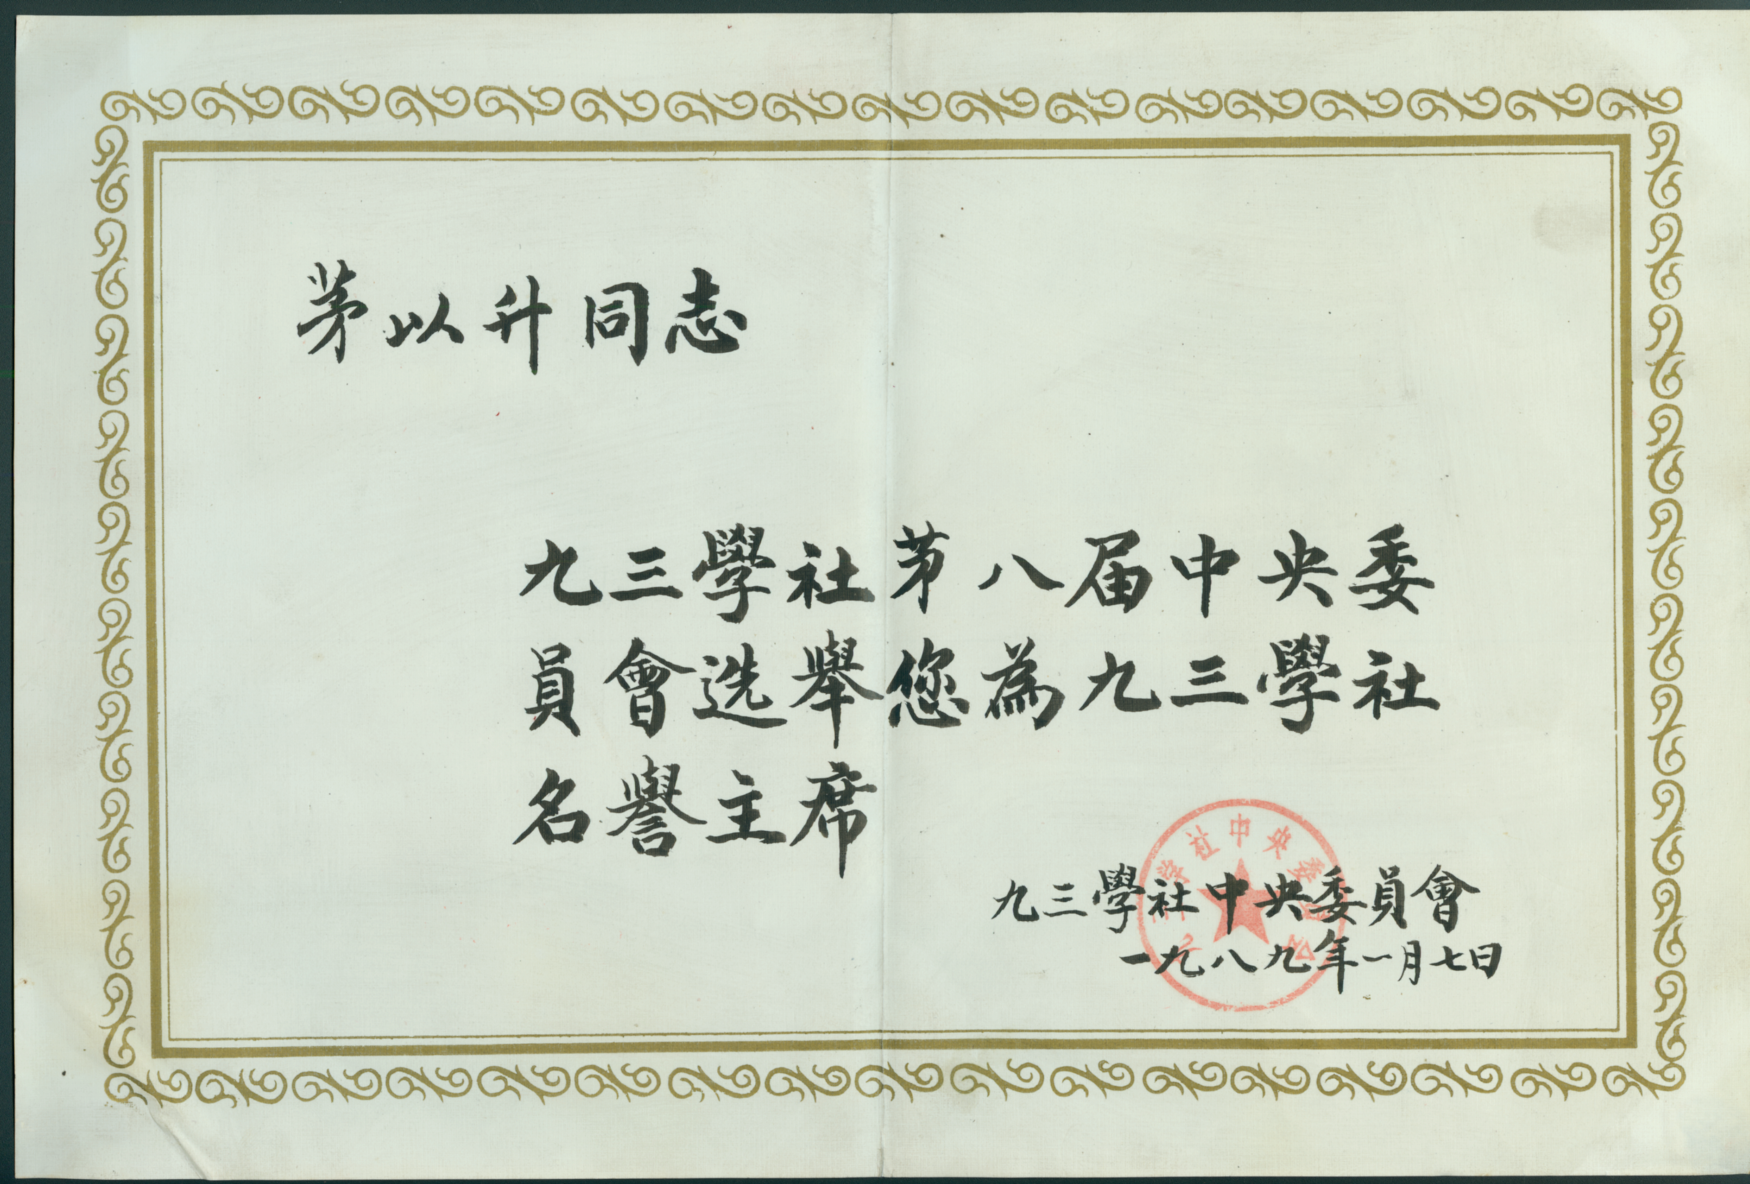 茅以升同志
九三學社第八届中央委
員會选舉您為九三學社
名譽主席
學社中央委
九三學社中央委員會
一九八九年一月七日